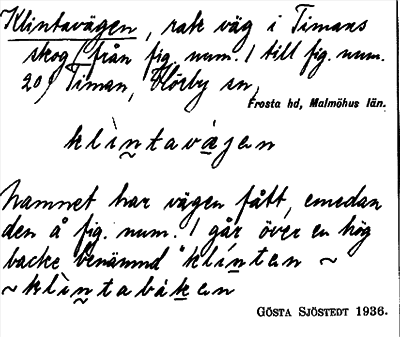 Klintavägen, rak väg i Timans
skog (från fig. num. 1 till fig. num.
20) Timan, Hörby sn,
Frosta hd, Malmöhus län.
klìn̰tavȧ̀jen
Namnet har vägen fått, emedan
den å fig. num. 1 går över en hög
backe benämnd "klínten ~
~ klìn̰tabákan
GÖSTA SJÖSTEDT 1936.